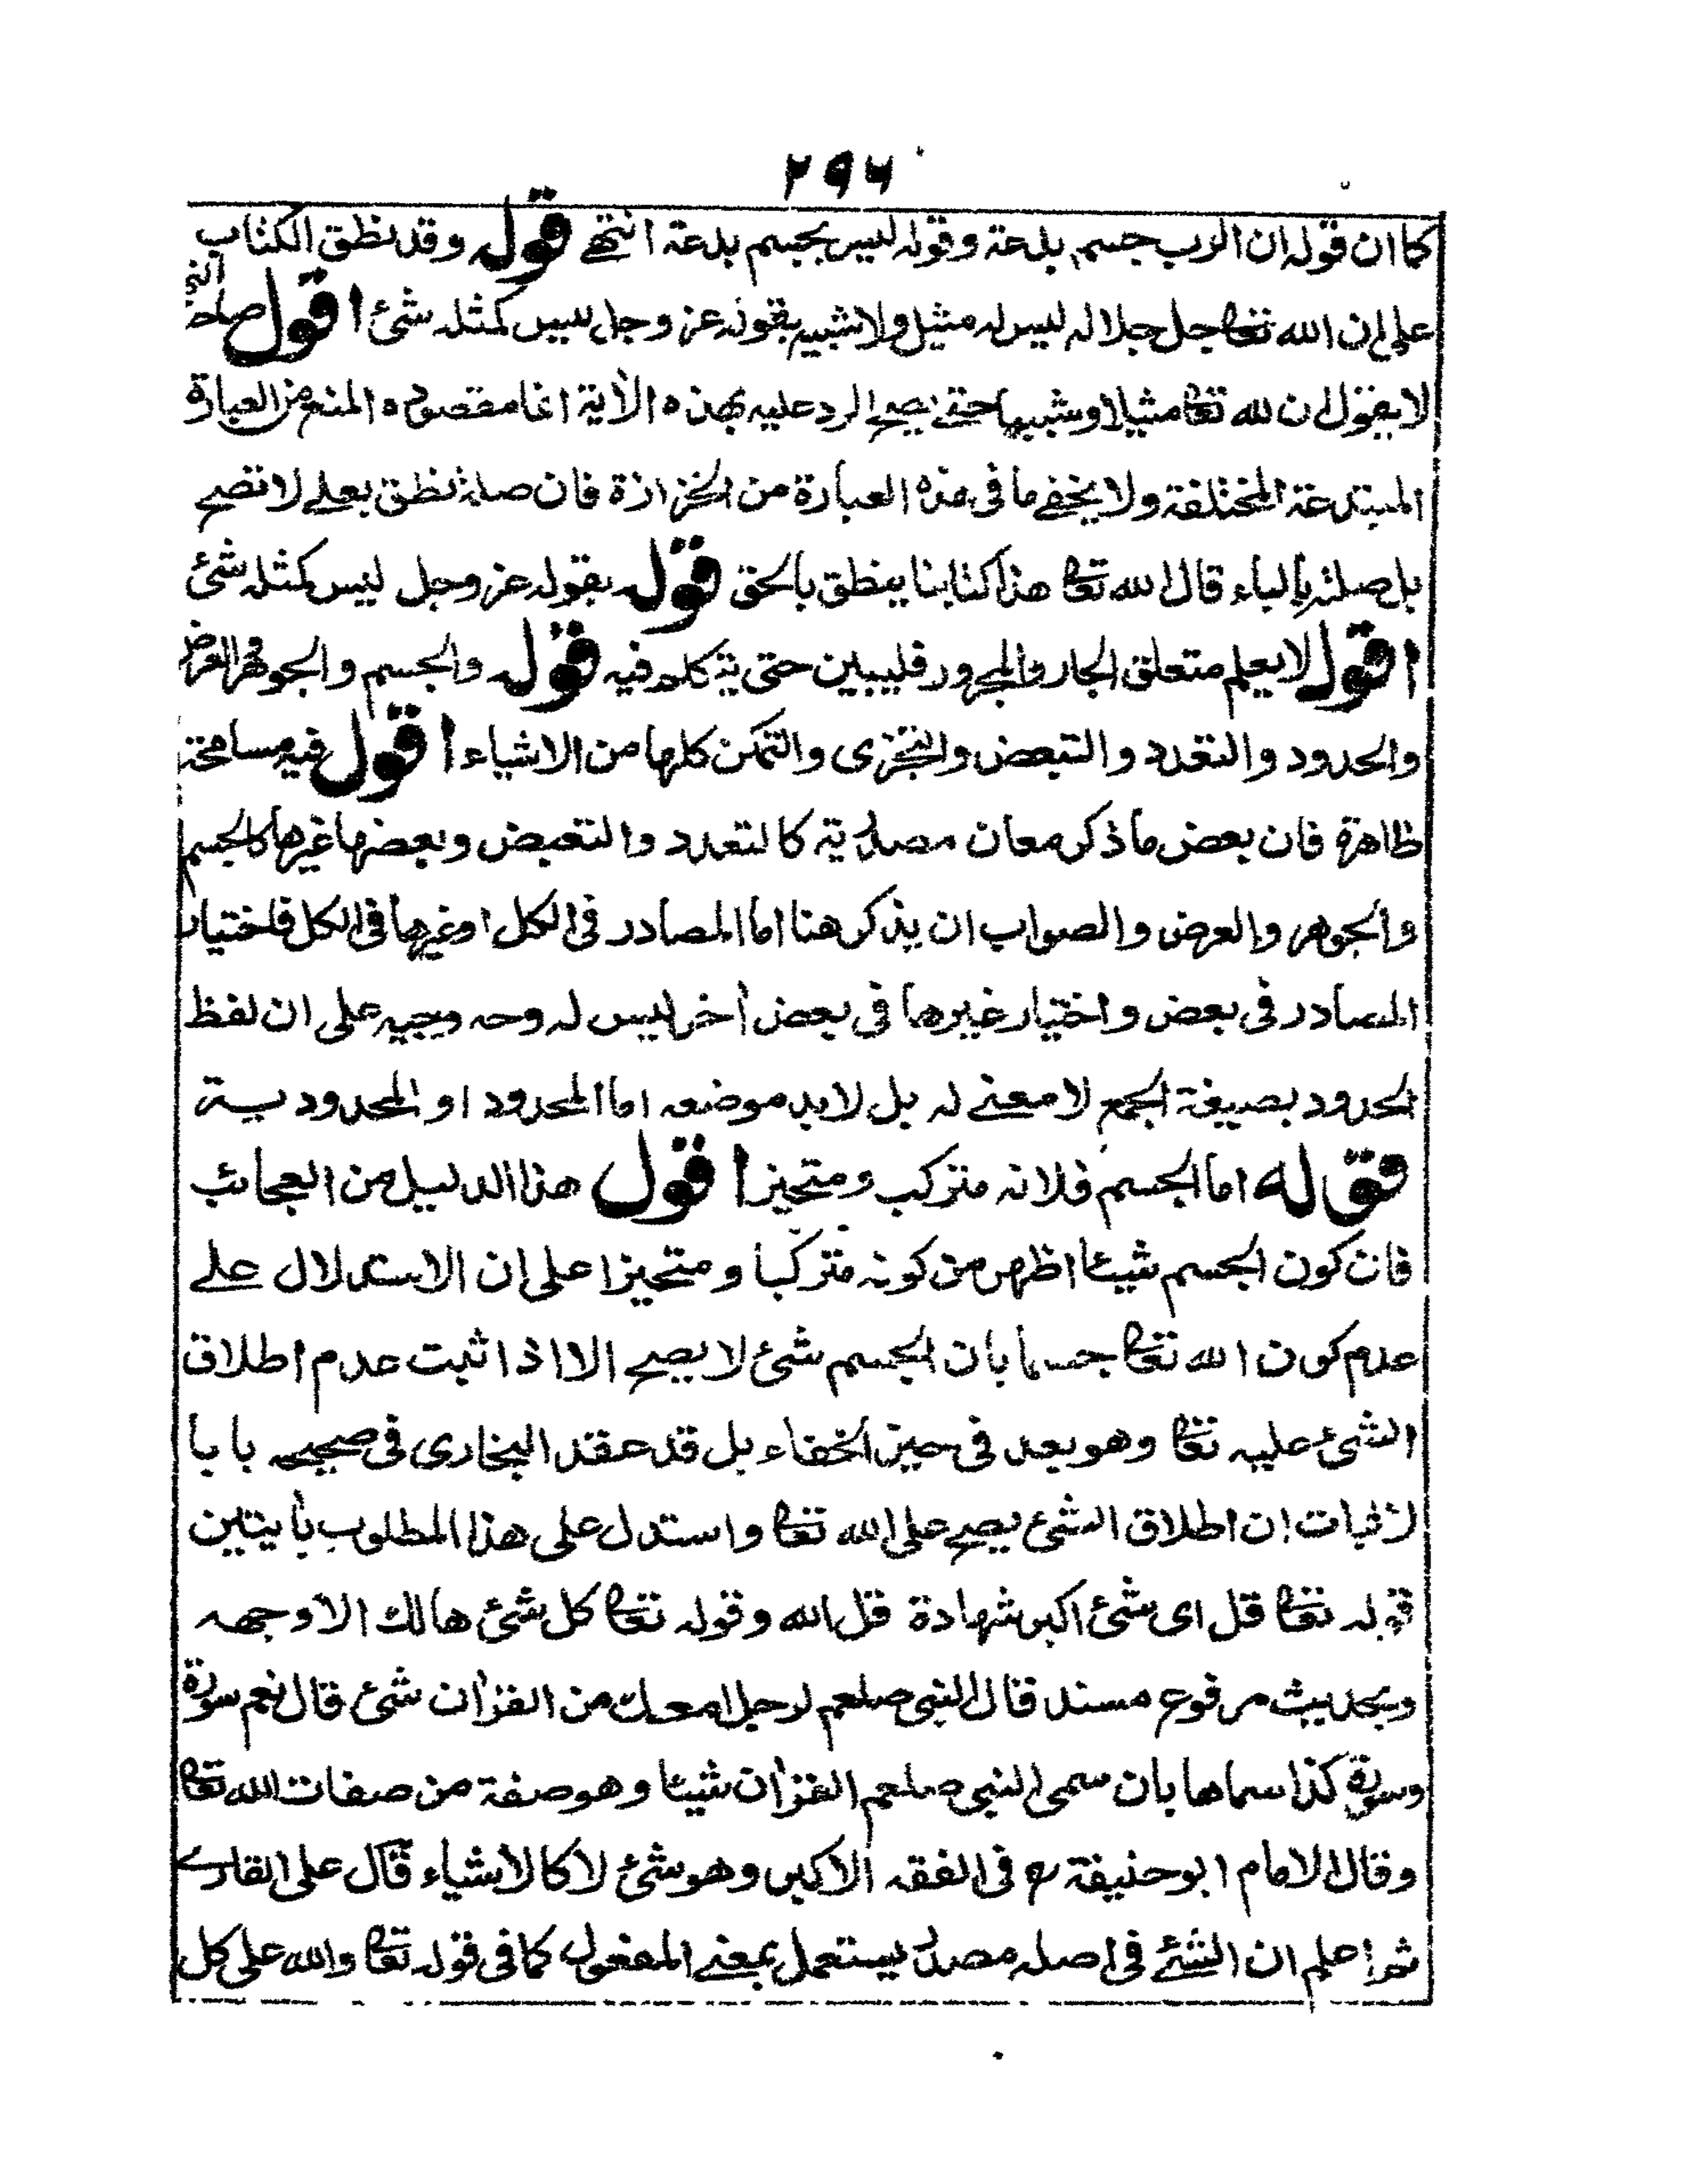 ۲۹۶
كما ان قوله ان الرب جسم بدعة وقوله ليس بجسم بدعة انتهے قوله وقد نطق الكتاب
على ان الله تعا جل جلاله ليس له مثيل ولا شبيه بقوله عز وجل ليس كمثله شئ اقول صاحب
لا يقول ان لله تعا مثيلا وشبيها حتے يصح الرد عليه بهذه الأية انما مقصوده المنع من العبارة
المبتدعة المختلفة ولا يخفے ما فى هذه العبارة من الخزازة فان صلة نطق بعلے لا تصح
بل صلته بالباء قال الله تعا هذا كتابنا ينطق بالحق قوله بقوله عز وجل ليس كمثله شئ
اقول لا يعلم متعلق الجار والمجرور فليبين حتى يتكلم فيه قوله والجسم والجوهر والعرض
والحدود والتعدد والتبعض والتجزى والتمكن كلها من الاشياء اقول فيه مسامحة
ظاهرة فان بعض ما ذكر معان مصدرية كالتعدد والتبعض وبعضها غيرها كالجسم
والجوهر والعرض والصواب ان يذكر هنا اما المصادر فى الكل او غيرها فى الكل فاختيار
المصادر فى بعض واختيار غيرها فى بعض أخر ليس له وجه وجيه على ان لفظ
الحدود بصيغة الجمع لا معنے له بل لابد موضعه اما المحدود او المحدودية
قوله اما الجسم فلانه متركب ومتحيز اقول هذا الدليل من العجائب
فان كون الجسم شيئا اظهر من كونه متركبا ومتحيزا على ان الاستدلال علے
عدم كون الله تعا جسما بان الجسم شئ لا يصح الا اذا ثبت عدم اطلاق
الشئ عليه تعا وهو بعد فى حيز الخفاء بل قد عقد البخارى فى صحيحه بابا
لاثبات ان اطلاق الشئ يصح على الله تعا واستدل على هذا المطلوب بأيتين
قوله تعا قل اى شئ اكبر شهادة قل الله وقوله تعا كل شئ هالك الا وجهه
وبحديث مرفوع مسند قال النبى صلعم لرجل امعك من القرأن شئ قال نعم سورة
وسورة كذا سماها بان سمى النبى صلعم القرأن شيئا وهو صفة من صفات الله تعا
وقال الامام ابو حنيفة رح فى الفقه الاكبر وهو شئ لا كالاشياء قال على القارے
ثم اعلم ان الشئے فى اصله مصدر يستعمل بمعنے المفعول كما فى قوله تعا والله على كل